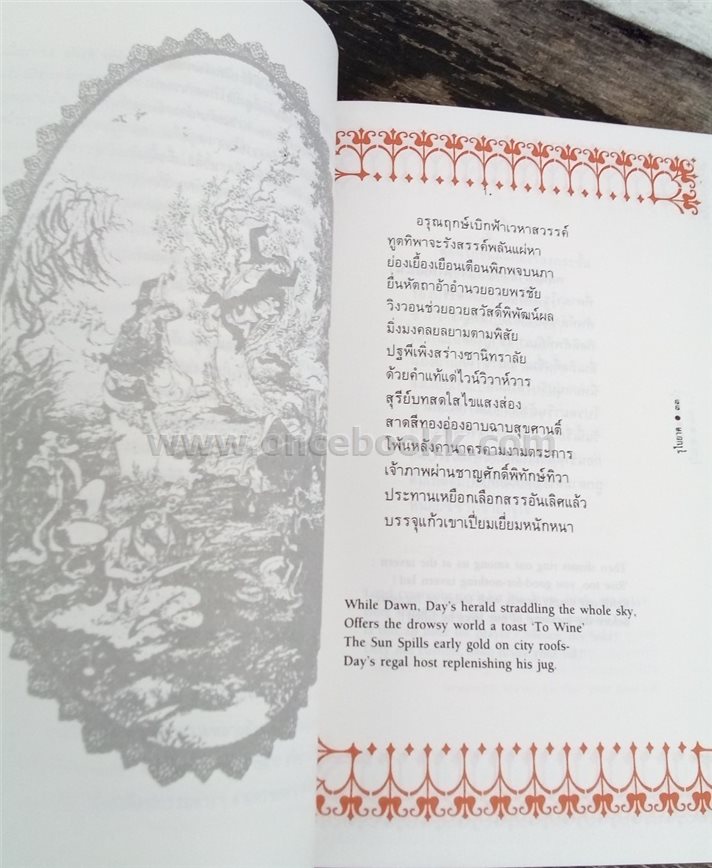 ๑.
อรุณฤกษ์เบิกฟ้าเวหาสวรรค์
ทูตทิพาจะรังสรรค์พลันแผ่หา
ย่องเยื้องเยือนเตือนพิภพจบนภา
ยื่นหัตถาอ้าอำนวยอวยพรชัย
วิงวอนช่วยอวยสวัสดิ์พิพัฒน์ผล
มิ่งมงคลยลยามตามพิสัย
ปฐพีเพิ่งสร่างซานิทราลัย
ด้วยคำแท้แด่ไวน์วิวาห์วาร
สุรีย์บทสดใสไขแสงส่อง
สาดสีทองอ่องอาบฉาบสุขศานติ์
โพ้นหลังคานาครคามงามตระการ
เจ้าภาพผ่านชาญศักดิ์พิทักษ์ทิวา
ประทานเหยือกเลือกสรรอันเลิศแล้ว
บรรจุแก้วเขาเปี่ยมเยี่ยมหนักหนา
While Dawn, Day's herald straddling the whole sky,
Offers the drowsy world a toast 'To Wine'
The Sun Spills early gold on city roofs-
Day's regal host replenishing his jug.
รุไบยาต ● ๓๓
www.oncebookk.com